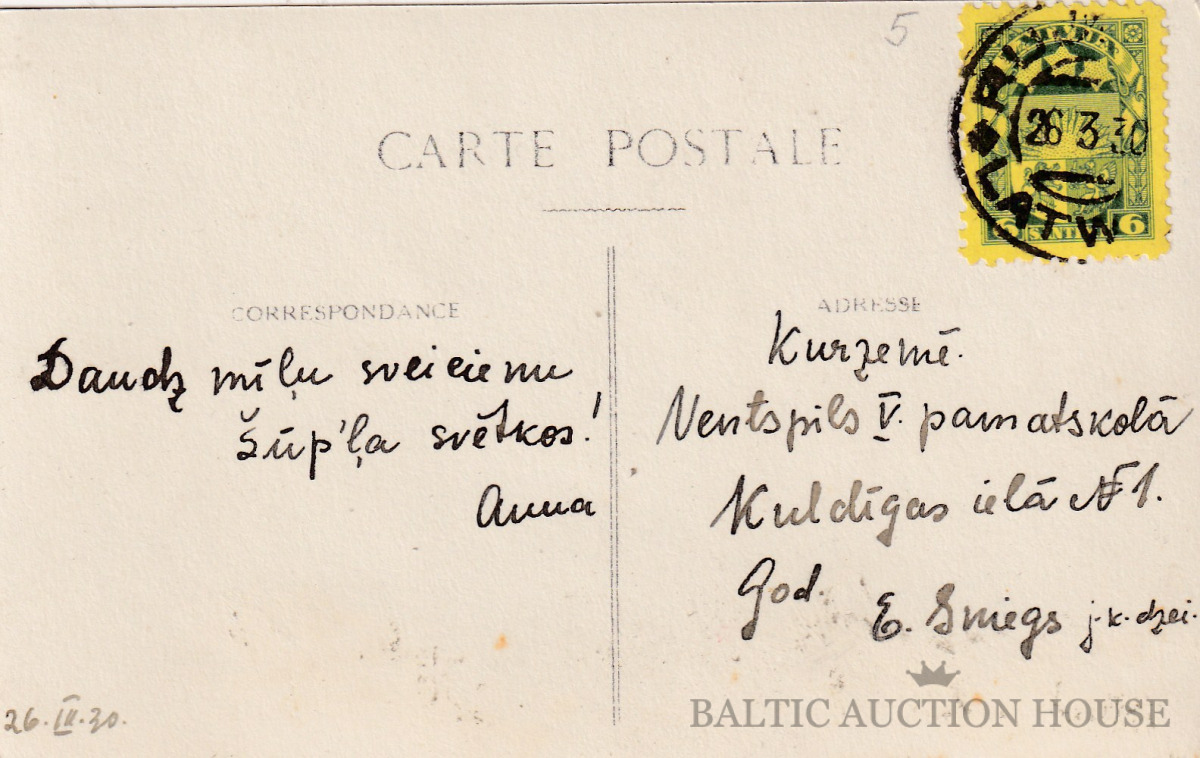 5
LATVIJA
RIGA
26 3 30
LATW
6 SANTIMI 6
CARTE POSTALE
CORRESPONDANCE
Daudz mīļu sveicienu
Šūp'ļa svētkos!
Anna
26. III. 30.
ADRESSE
Kurzemē.
Ventspils V. pamatskolā
Kuldīgas ielā № 1.
God.
E. Sniegs j-k-dzei.
BALTIC AUCTION HOUSE